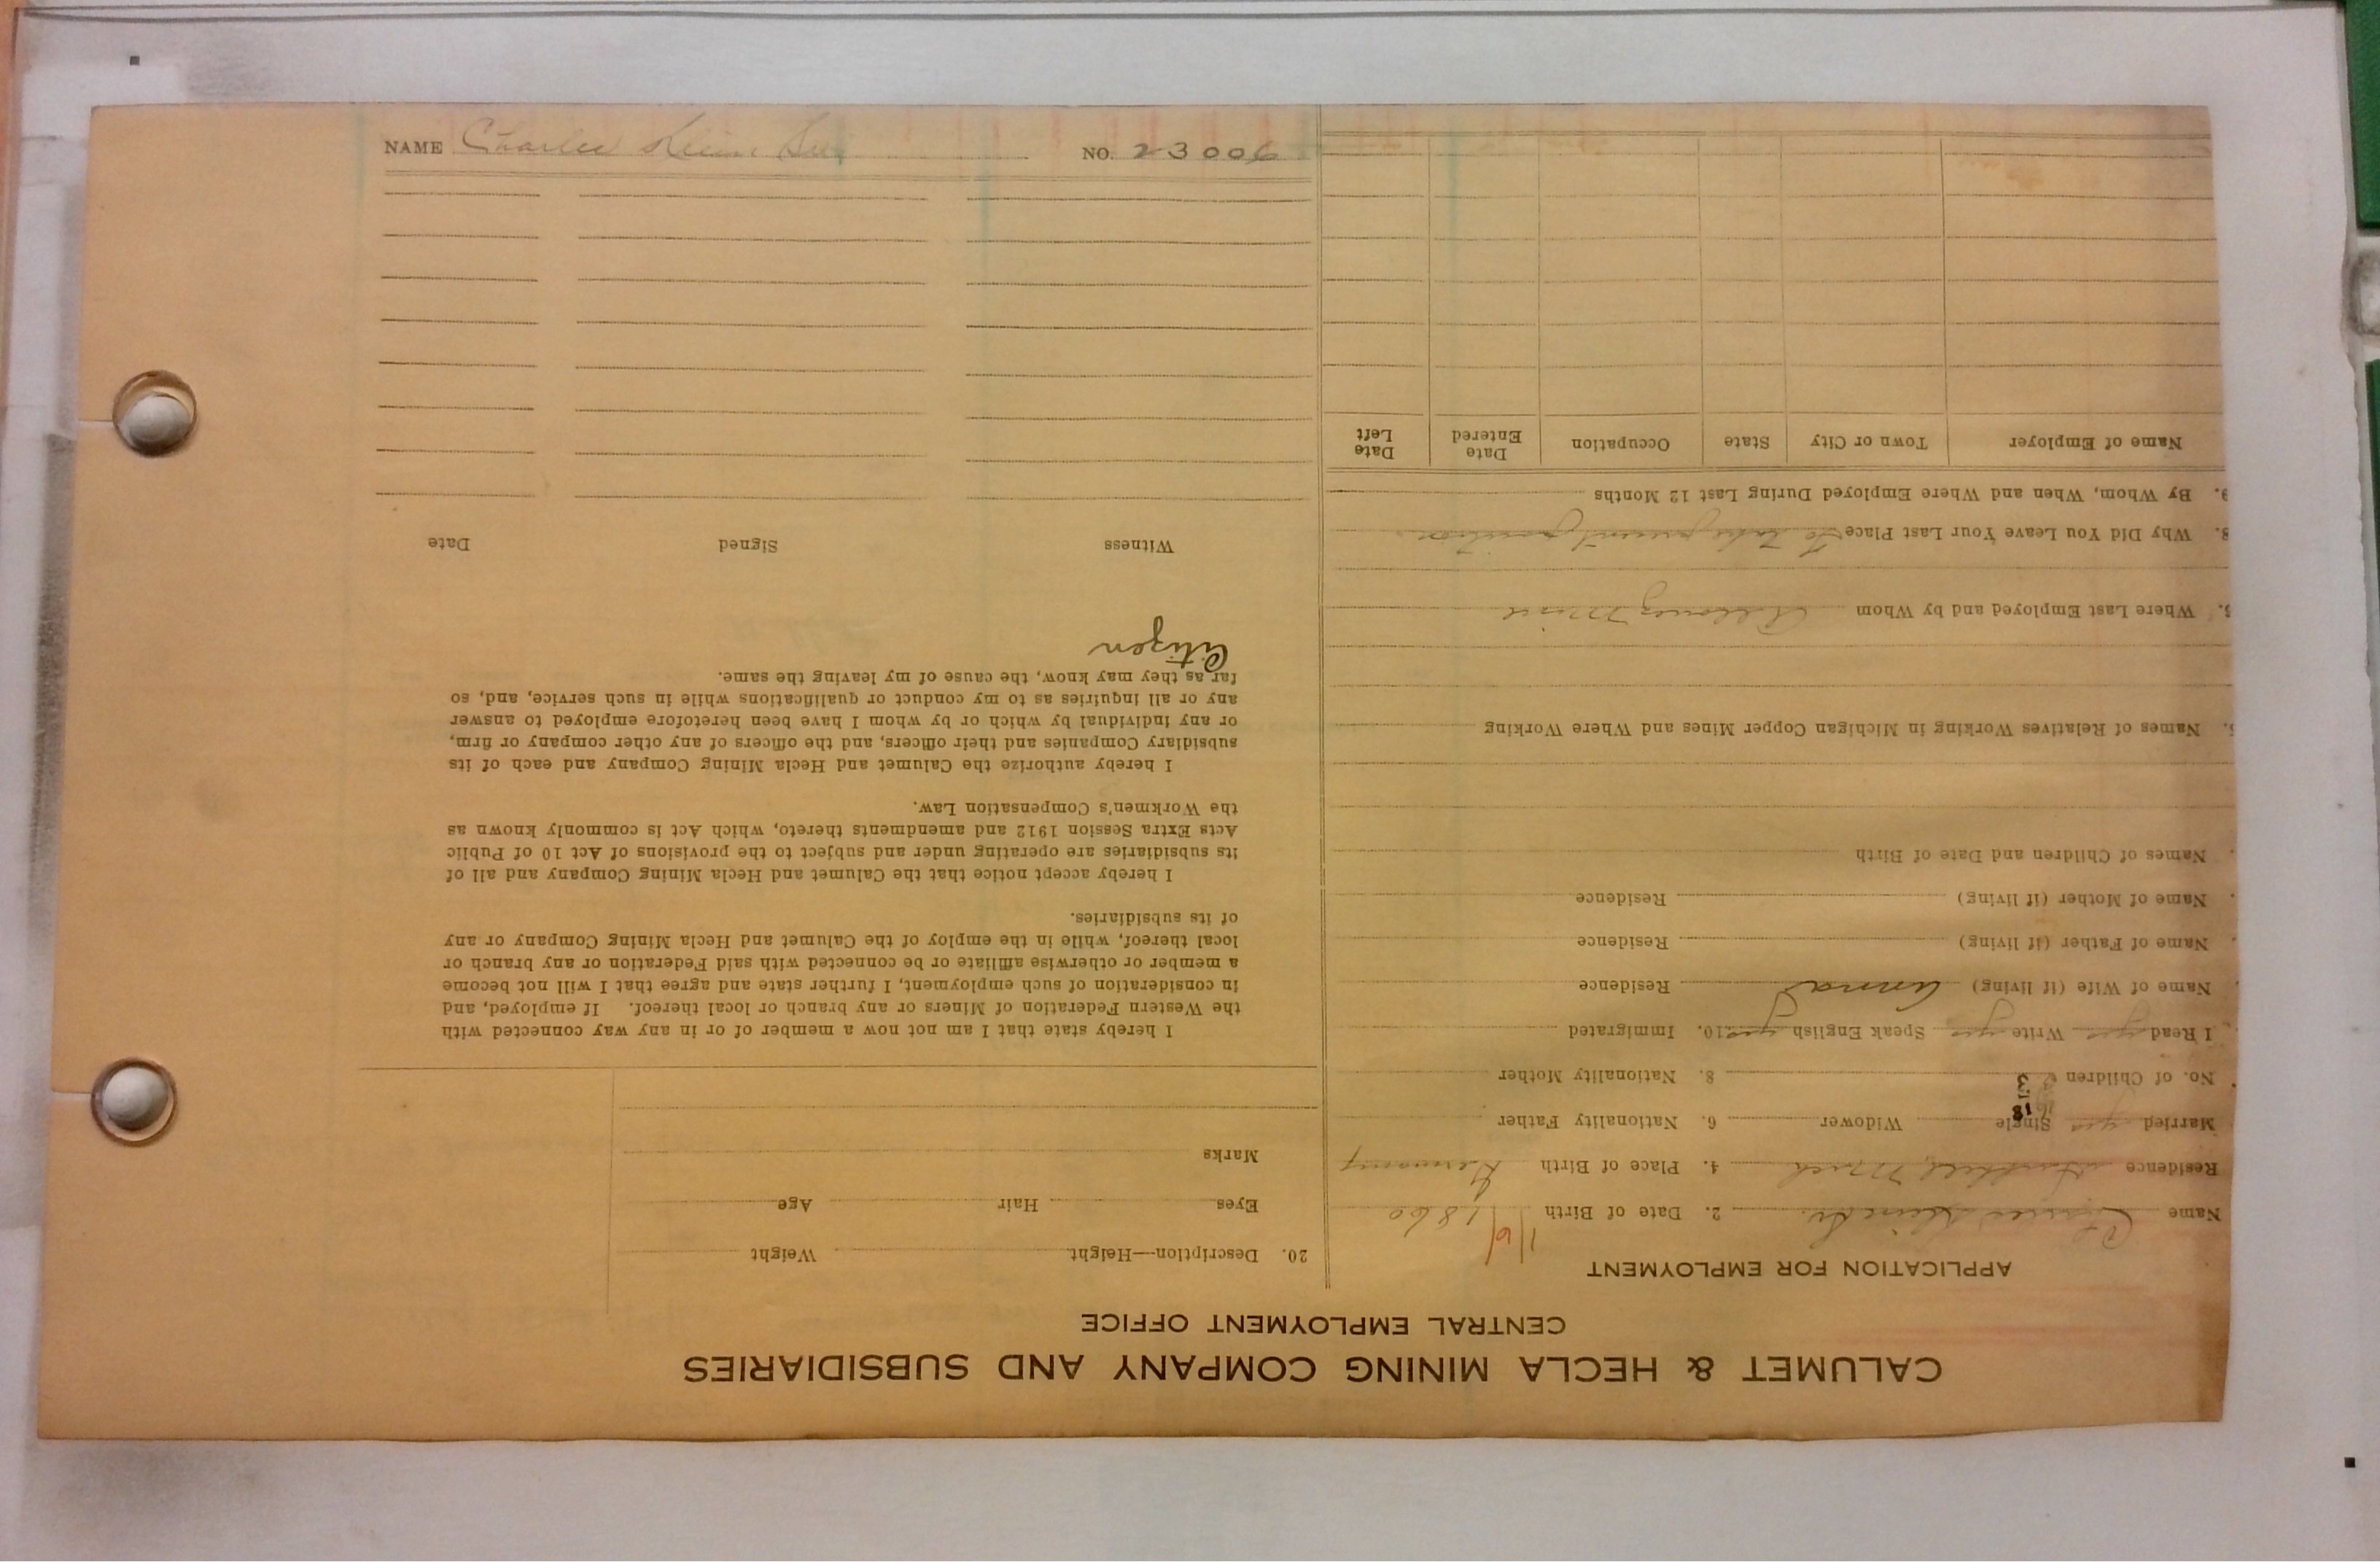 NAME Charles Klein Sr. NO. 23006
CALUMET & HECLA MINING COMPANY AND SUBSIDIARIES
CENTRAL EMPLOYMENT OFFICE
APPLICATION FOR EMPLOYMENT
Name Charles Klein Sr. 2. Date of Birth 1/6/1860
Residence Mich 4. Place of Birth Germany
Married yes Single Widower 6. Nationality Father
No. of Children 3 8. Nationality Mother
I Read yes Write yes Speak English yes 10. Immigrated
Name of Wife (if living) Anna Residence
Name of Father (if living) Residence
Name of Mother (if living) Residence
Names of Children and Date of Birth
Names of Relatives Working in Michigan Copper Mines and Where Working
Where Last Employed and by Whom Allouez Mine
Why Did You Leave Your Last Place To take present position
9. By Whom, When and Where Employed During Last 12 Months
Name of Employer Town or City State Occupation Date Entered Date Left
20. Description—Height Weight
Eyes Hair Age
Marks
I hereby state that I am not now a member of or in any way connected with
the Western Federation of Miners or any branch or local thereof. If employed, and
in consideration of such employment, I further state and agree that I will not become
a member or otherwise affiliate or be connected with said Federation or any branch or
local thereof, while in the employ of the Calumet and Hecla Mining Company or any
of its subsidiaries.
I hereby accept notice that the Calumet and Hecla Mining Company and all of
its subsidiaries are operating under and subject to the provisions of Act 10 of Public
Acts Extra Session 1912 and amendments thereto, which Act is commonly known as
the Workmen's Compensation Law.
I hereby authorize the Calumet and Hecla Mining Company and each of its
subsidiary Companies and their officers, and the officers of any other company or firm,
or any individual by which or by whom I have been heretofore employed to answer
any or all inquiries as to my conduct or qualifications while in such service, and, so
far as they may know, the cause of my leaving the same.
Citizen
Witness Signed Date